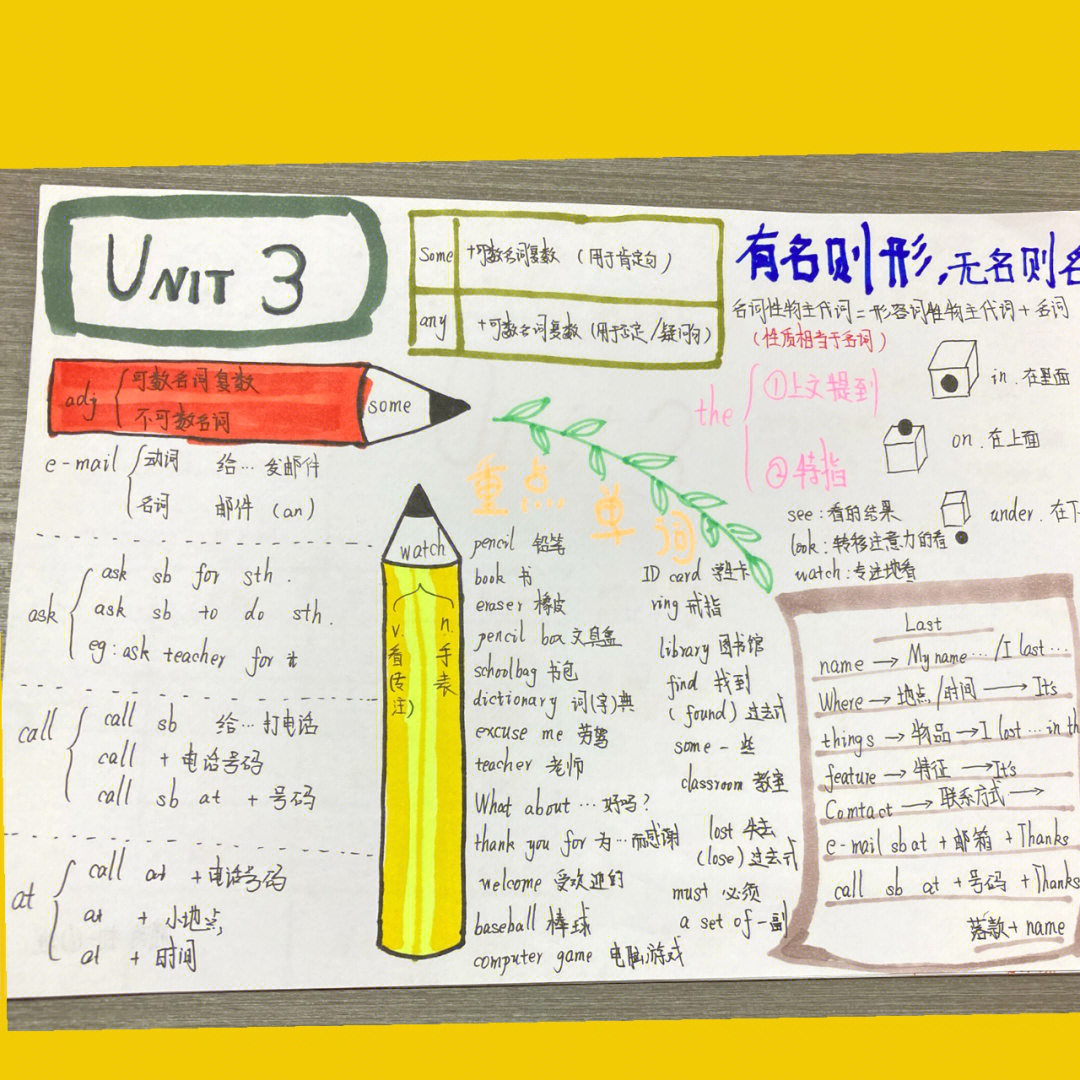 UNIT 3
some +可数名词复数 (用于肯定句)
any +可数名词复数 (用于否定/疑问句)
有名则形,无名则名
名词性物主代词=形容词性物主代词+名词
(性质相当于名词)
adj 可数名词复数
不可数名词
some
e-mail 动词 给…发邮件
名词 邮件 (an)
ask ask sb for sth.
ask sb to do sth.
eg: ask teacher for it
call call sb 给…打电话
call +电话号码
call sb at +号码
at call at +电话号码
at +小地点
at +时间
watch
v. 看(专注)
n. 手表
重点单词
pencil 铅笔
book 书
eraser 橡皮
pencil box 文具盒
schoolbag 书包
dictionary 词(字)典
excuse me 劳驾
teacher 老师
What about …好吗?
thank you for 为…而感谢
welcome 受欢迎的
baseball 棒球
computer game 电脑游戏
ID card 学生卡
ring 戒指
library 图书馆
find 找到
(found) 过去式
some 一些
classroom 教室
lost 失去
(lose) 过去式
must 必须
a set of 一副
the ①上文提到
②特指
in.在里面
on.在上面
under.在下
see:看的结果
look:转移注意力的看
watch:专注地看
Last
name → My name… /I last…
Where → 地点/时间 → It's
things → 物品 → I lost…in th
feature → 特征 → It's
Comtact → 联系方式 →
e-mail sb at +邮箱 +Thanks
call sb at +号码 +Thanks
落款+name